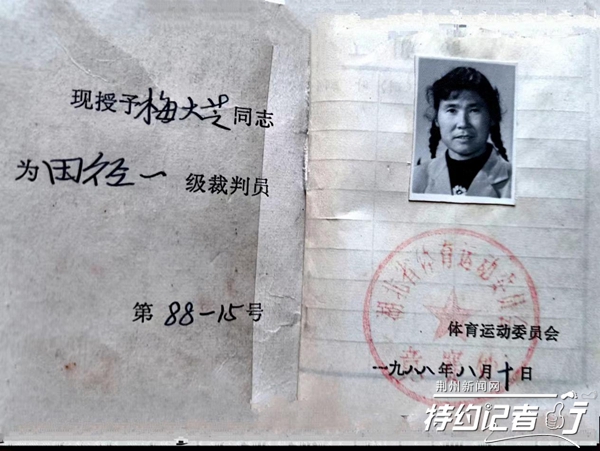 现授予梅大芝同志
为田径一级裁判员
第88-15号
湖北省体育运动委员会
体育运动委员会
一九八八年八月十日
荆州新闻网
特约记者行